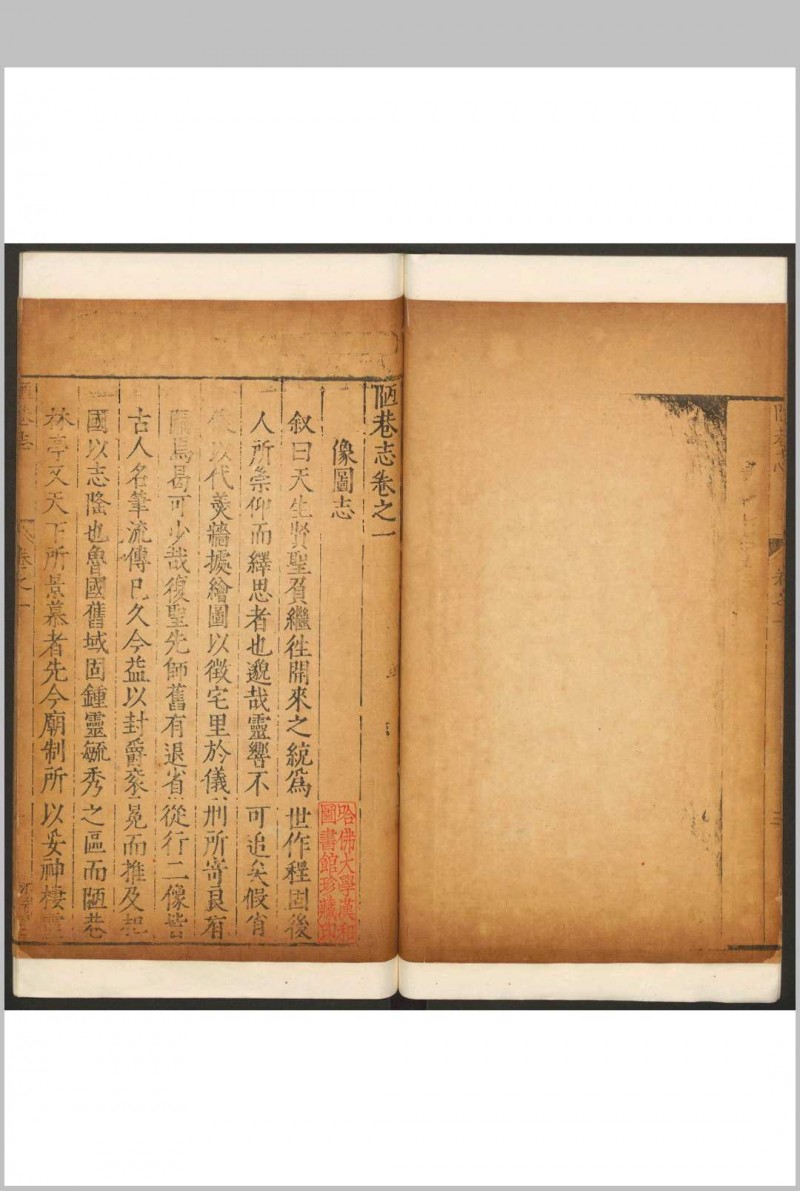 陋巷志卷之一
像圖志
敘曰天生賢聖負繼徃開來之統爲世作程固後
人所崇仰而繹思者也邈哉靈響不可追矣假肖
以代羹牆據繪圖以徵宅里於儀刑所寄良有
關焉曷可少哉復聖先師舊有退省從行二像皆
古人名筆流傳已久今益以封爵衮冕而推及
國以志隆也魯國舊域固鍾靈毓秀之區而陋巷
林亭又天下所景慕者先今廟制所以妥神棲
哈佛大學漢和
圖書館珍藏印
陋巷志
卷之一